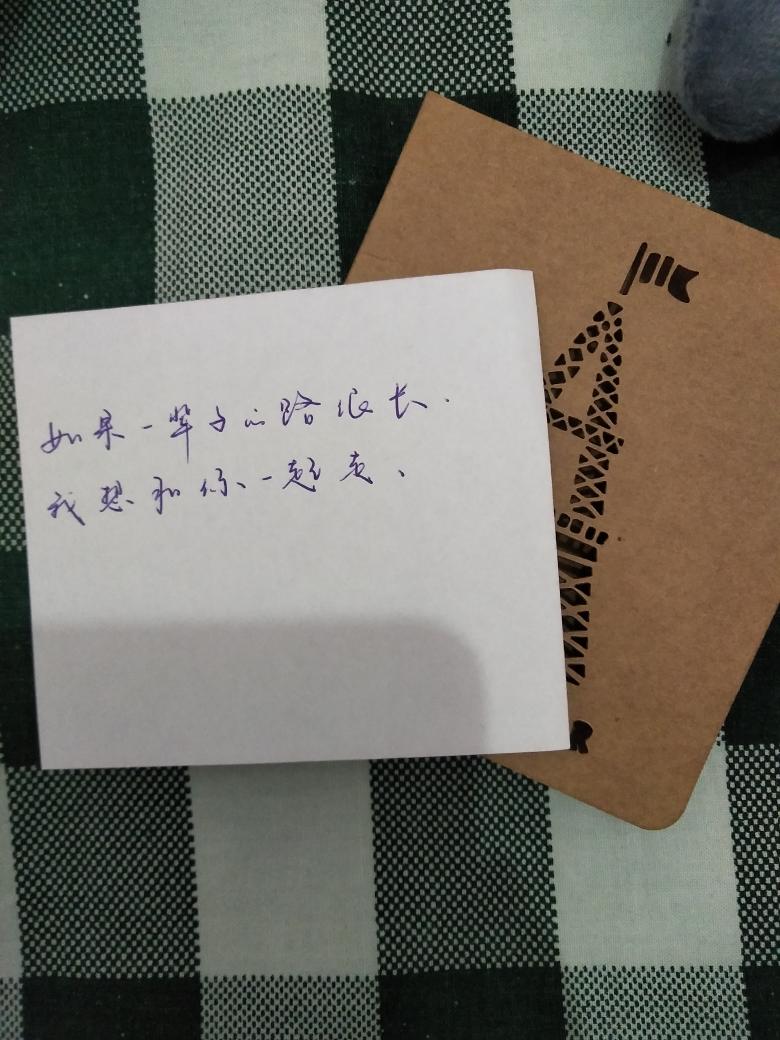 如果一辈子的路很长.
我想和你一起走、
R